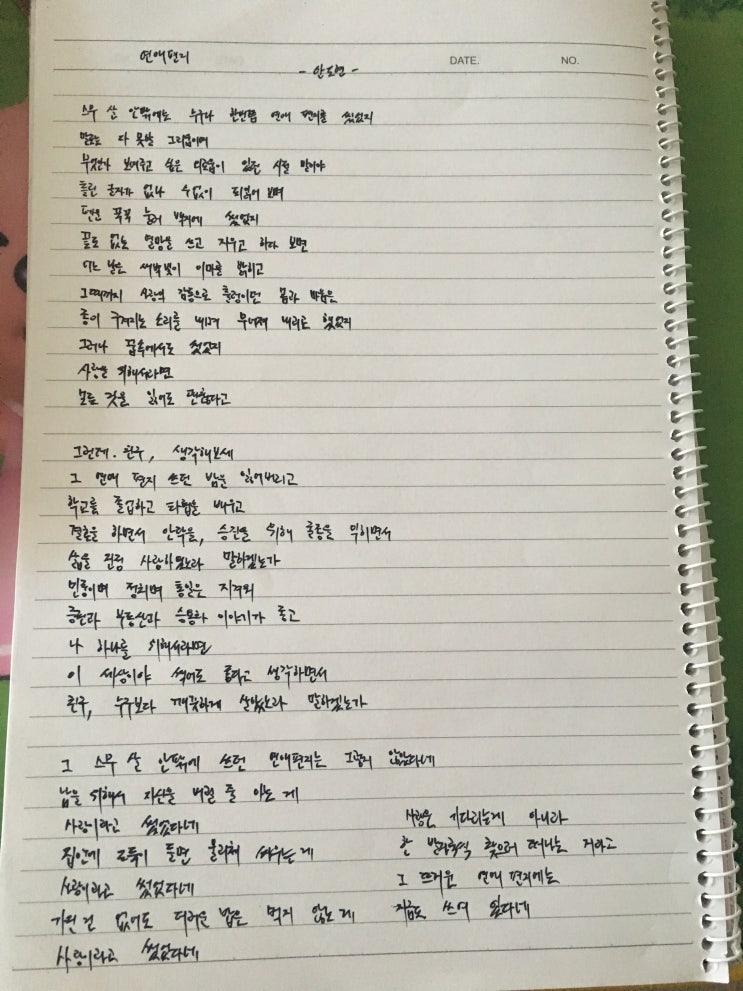 연애편지
DATE. NO.
- 안도현 -
스무 살 안팎에는 누구나 한번쯤 연애 편지를 썼었지
말로는 다 못할 그리움이며
무엇인가 보여주고 싶은 외로움이 있던 시절 말이야
틀린 글자가 없나 수없이 되읽어 보며
펜을 꾹꾹 눌러 백지에 썼었지
끝도 없는 열망을 쓰고 지우고 하다 보면
어느 날은 새벽빛이 이마를 밝히고
그때까지 사랑의 감동으로 출렁이던 몸과 마음은
종이 구겨지는 소리를 내며 무너져 내리곤 했었지
그러나 꿈속에서도 썼었지
사랑을 위해서라면
모든 것을 잃어도 괜찮다고
그런데. 친구, 생각해보세
그 연애 편지 쓰던 밤을 잃어버리고
학교를 졸업하고 타협을 배우고
결혼을 하면서 안락을, 승진을 위해 굴종을 익히면서
삶을 진정 사랑하였노라 말하겠는가
민중이며 정치며 통일은 지겨워
증권과 부동산과 승용차 이야기가 좋고
나 하나를 위해서라면
이 세상이야 썩어도 좋다고 생각하면서
친구, 누구보다 깨끗하게 살았노라 말하겠는가
그 스무 살 안팎에 쓰던 연애편지는 그렇지 않았다네
남을 위해서 자신을 버릴 줄 아는 게
사랑이라고 썼었다네
집안에 도둑이 들면 물리쳐 싸우는 게
사랑이라고 썼었다네
가진 건 없어도 더러운 밥은 먹지 않는 게
사랑이라고 썼었다네
사랑은 기다리는게 아니라
한 발자국씩 찾으러 떠나는 거라고
그 뜨거운 연애 편지에는
지금도 쓰여 있다네